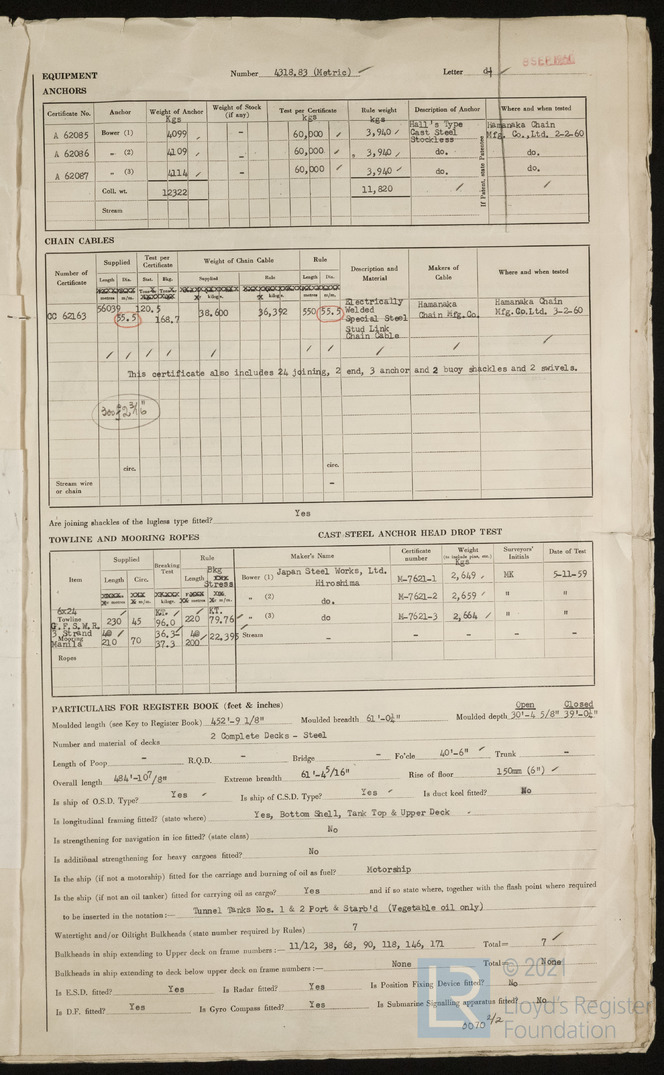 8 SEP 1960
EQUIPMENT Number 4318.83 (Metric) Letter d†
ANCHORS
Certificate No. Anchor Weight of Anchor Kgs Weight of Stock (if any) Test per Certificate kgs Rule weight kgs Description of Anchor If Patent, state Patentee Where and when tested
A 62085 Bower (1) 4099 - 60,000 3,940 Hall's Type Cast Steel Stockless Hamanaka Chain Mfg. Co.,Ltd. 2-2-60
A 62086 „ (2) 4109 - 60,000 3,940 do. do.
A 62087 „ (3) 4114 - 60,000 3,940 do. do.
Coll. wt. 12322 11,820
Stream
CHAIN CABLES
Number of Certificate Supplied Test per Certificate Weight of Chain Cable Rule Description and Material Makers of Cable Where and when tested
Length Dia. Stat. Bkg. Supplied Rule Length Dia.
metres m/m. kilog's. kilog's. metres m/m.
CC 62163 56039 55.5 120.5 168.7 38,600 36,392 550 55.5 Electrically Welded Special Steel Stud Link Chain Cable Hamanaka Chain Mfg.Co. Hamanaka Chain Mfg.Co.Ltd. 3-2-60
This certificate also includes 24 joining, 2 end, 3 anchor and 2 buoy shackles and 2 swivels.
2 3/16"
circ. circ.
Stream wire or chain -
Are joining shackles of the lugless type fitted? Yes
TOWLINE AND MOORING ROPES
Item Supplied Breaking Test Rule
Length Circ. Length Bkg Stress
metres m/m. kilogs. metres
6x24 Towline G.F.S.W.R. 230 45 KT. 96.0 220 KT. 79.76
3 Strand Mooring Manila 40 210 70 36.3 37.3 40 200 22.395
Ropes
CAST STEEL ANCHOR HEAD DROP TEST
Maker's Name Certificate number Weight (to include pins, etc.) Kgs Surveyors' Initials Date of Test
Bower (1) Japan Steel Works, Ltd. Hiroshima M-7621-1 2,649 MK 5-11-59
„ (2) do. M-7621-2 2,659 " "
„ (3) do M-7621-3 2,664 " "
Stream - - - - -
PARTICULARS FOR REGISTER BOOK (feet & inches) Open Closed
Moulded length (see Key to Register Book) 452'-9 1/8" Moulded breadth 61'-0¼" Moulded depth 30'-4 5/8" 39'-0¼"
Number and material of decks 2 Complete Decks - Steel
Length of Poop - R.Q.D. - Bridge - Fo'cle 40'-6" Trunk -
Overall length 484'-10 7/8" Extreme breadth 61'-4 5/16" Rise of floor 150mm (6")
Is ship of O.S.D. Type? Yes Is ship of C.S.D. Type? Yes Is duct keel fitted? No
Is longitudinal framing fitted? (state where) Yes, Bottom Shell, Tank Top & Upper Deck
Is strengthening for navigation in ice fitted? (state class) No
Is additional strengthening for heavy cargoes fitted? No
Is the ship (if not a motorship) fitted for the carriage and burning of oil as fuel? Motorship
Is the ship (if not an oil tanker) fitted for carrying oil as cargo? Yes and if so state where, together with the flash point where required
to be inserted in the notation:— Tunnel Tanks Nos. 1 & 2 Port & Starb'd (Vegetable oil only)
Watertight and/or Oiltight Bulkheads (state number required by Rules) 7
Bulkheads in ship extending to Upper deck on frame numbers:— 11/12, 38, 68, 90, 118, 146, 171 Total= 7
Bulkheads in ship extending to deck below upper deck on frame numbers:— None Total= None
Is E.S.D. fitted? Yes Is Radar fitted? Yes Is Position Fixing Device fitted? No
Is D.F. fitted? Yes Is Gyro Compass fitted? Yes Is Submarine Signalling apparatus fitted? No
0070 2/2
LR © 2021
Lloyd's Register
Foundation